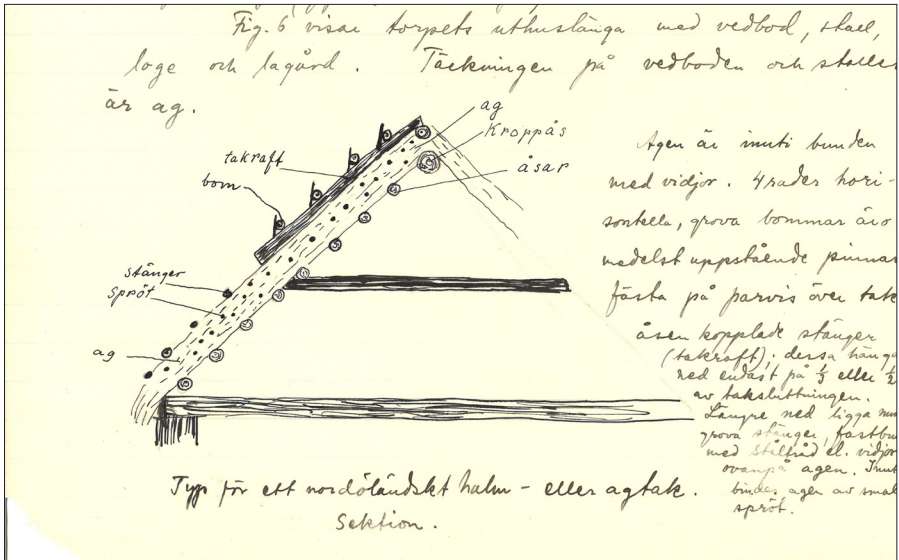 Fig. 6 visar torpets uthuslänga med vedbod, stall,
loge och lagård. Täckningen på vedboden och stallet
är ag.
ag
Kroppås
åsar
takraft
bom
stänger
spröt
ag
Agen är inuti bunden
med vidjor. 4 rader hori-
sontella, grova bommar äro
medelst uppstående pinnar
fästa på parvis över tak
åsen kopplade stänger
(takraft); dessa hänga
ned endast på 1/3 eller 1/2
av taksluttningen.
Längre ned ligga
grova stänger,
med ståltråd el. vidjor
ovanpå agen. Inut
bindes agen av smal
spröt.
Typ för ett nordöländskt halm- eller agtak.
Sektion.